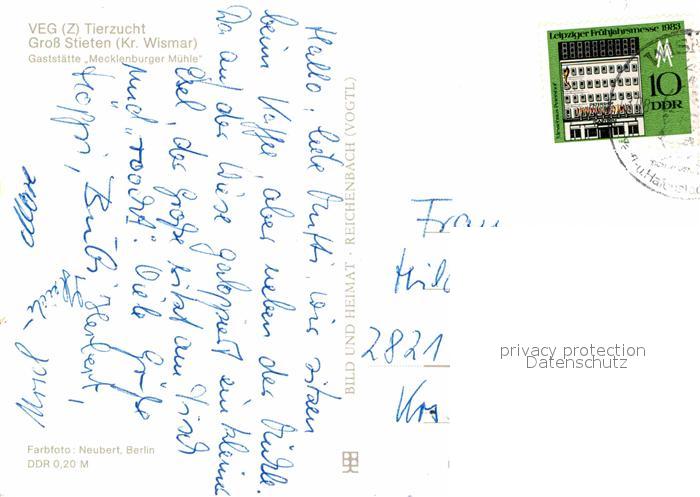 VEG (Z) Tierzucht
Groß Stieten (Kr. Wismar)
Gaststätte „Mecklenburger Mühle"
Hallo, liebe Mutti, wir sitzen
beim Kaffee, aber neben der Mühle.
Da auf der Wiese galoppiert ein kleiner
Esel, der Große sitzt am Tisch
und Viele Grüße
Hoppi, Herbert,
Farbfoto: Neubert, Berlin
DDR 0,20 M
BILD UND HEIMAT · REICHENBACH (VOGTL)
Leipziger Frühjahrsmesse 1983
10
DDR
Frau
2821
privacy protection
Datenschutz